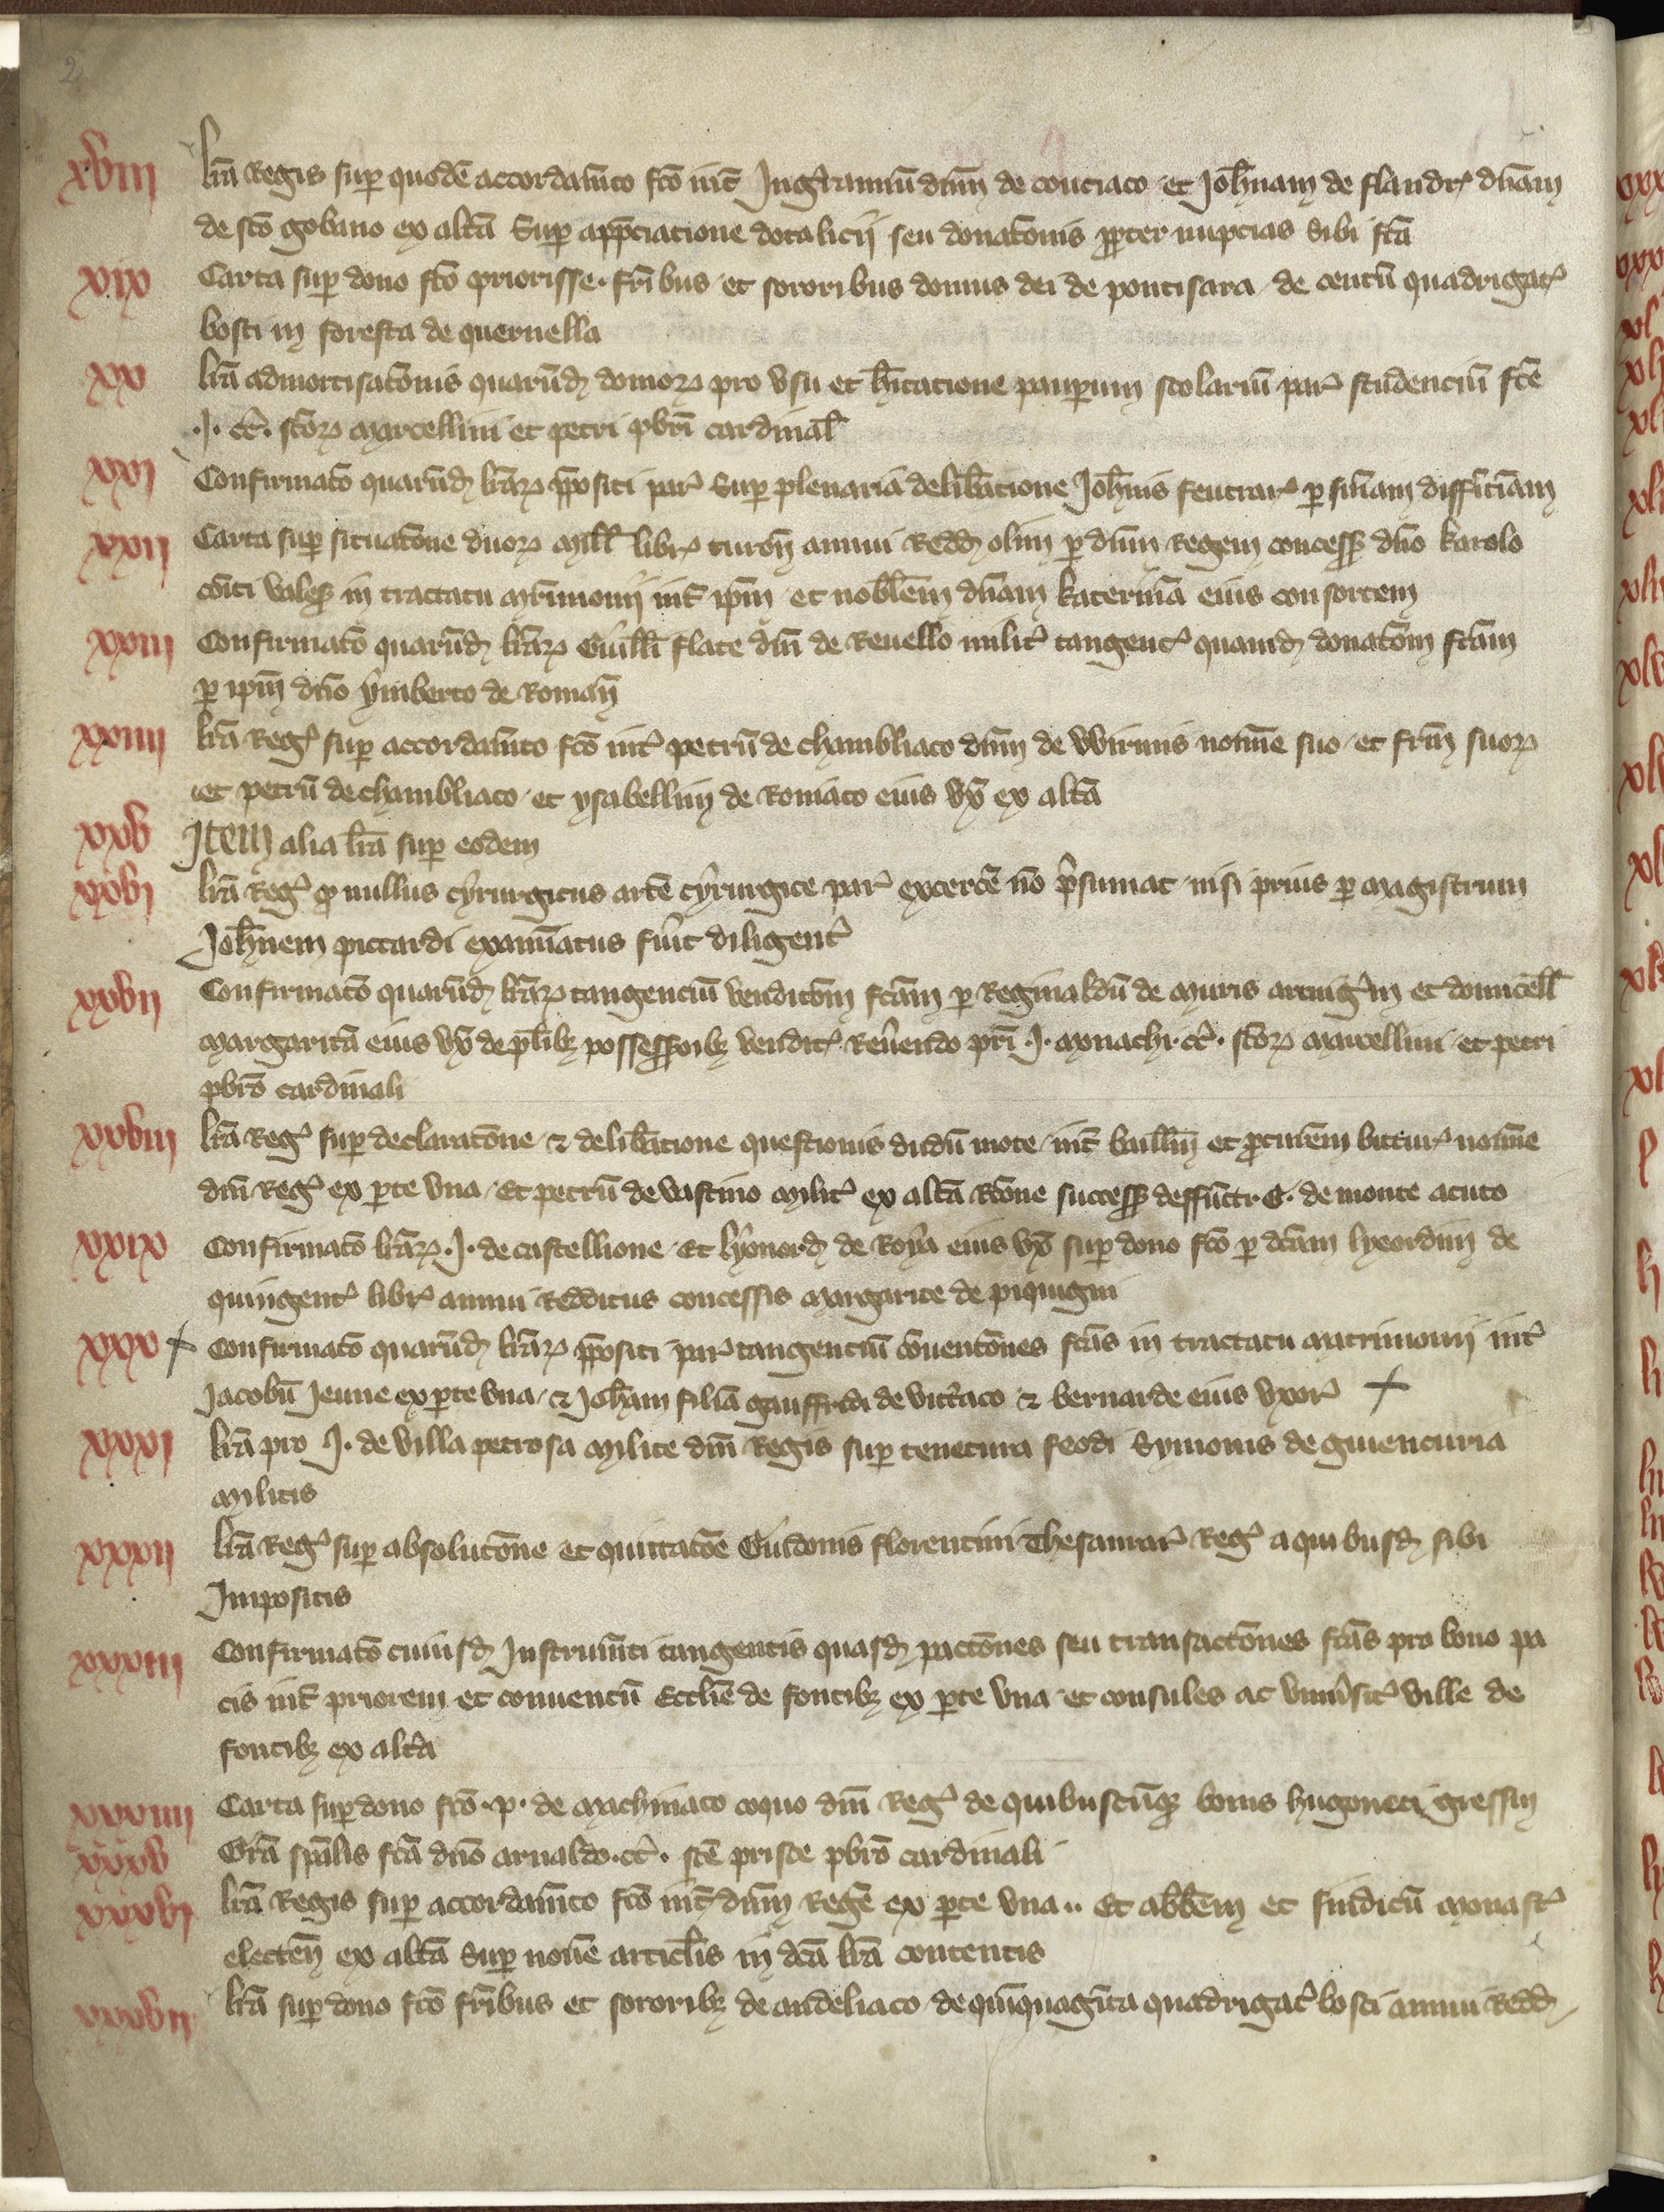 2
xviii lr̄a Regis suꝑ quodē accordam̄to fc̄o int̄ Ingerannū dn̄m de couciaco et Joh̄nam de flandr̕ dn̄am
de sc̄o gobano ex altā Suꝑ app̄ciacione dotalicij seu donat̄onis ꝓpter nupcias sibi fc̄a
xix Carta suꝑ dono fc̄o priorisse . fr̄ibus et sororibus domus dei de pontisara de centū quadrigat̕
bosci in foresta de quernella
xx lr̄a admortisat̄onis quarūdꝫ domoꝝ pro vsu et h̄itacione pauꝑum scolariū par̕ studenciū fc̄e
.J. tt̄. sc̄oꝝ Marcellini et petri pbr̄i cardinal̄
xxi Confirmat̄o quarūdꝫ lr̄aꝝ p̄positi par̕ Suꝑ plenaria delib̄acione Joh̄nis feutrar̕ ꝑ sn̄iam diffinit̄iam
xxii Carta suꝑ situat̄one duoꝝ Mill̄ libr̕ turoñ annui Reddꝫ olim ꝑ dn̄m Regem concess̄ dn̄o karolo
com̄iti vales̄ in tractatu mr̄imonij int̄ ip̄m et nobl̄em dn̄am katerinā eius consortem
xxiii Confirmat̄o quarūdꝫ lr̄aꝝ Guill̄i flate dn̄i de Reuello milit̕ tangent̕ quamdꝫ donat̄om fc̄am
ꝑ ip̄m dn̄o ymberto de Romañ
xxiiii lr̄a Reg̕ suꝑ accordam̄to fc̄o int̕ petrū de chambliaco dn̄m de Wirmis nomīe suo et fr̄m suoꝝ
et petrū de chambliaco et ysabellim de Romāco eius vx̄ ex altā
xxv Item alia lr̄a suꝑ eodem
xxvi lr̄a Reg̕ ꝙ nullus cyrurgicus artē cyrurgice par̕ excercē nō p̄sumat nisi prius ꝑ Magistrum
Joh̄nem piccardi examīatus fuīt diligent̕
xxvii Confirmat̄o quarūdꝫ lr̄aꝝ tangenciū vendit̄om fc̄am ꝑ Reginaldū de Muris armig̕m et domicell̄
Margaritā eius vx̄ de pl̄ibꝫ possess̄oibꝫ vendit̕ Reu̕endo pr̄i .J. Monachi. tt̄. sc̄oꝝ Marcellini et petri
pbr̄o cardinali
xxviii lr̄a Reg̕ suꝑ declarat̄one & delib̄acione questionis dudū mote int̄ baill̄m et ꝓcur̄em bittur̕ nomīe
dn̄i Reg̕ ex ꝑte vna / Et petrū de vastino Milit̕ ex altā Rōne success̄ deffunct̕ G. de monte acuto
xxix Confirmat̄o lr̄aꝝ .J. de castellione Et lyonordꝫ de Roya eius vx̄ suꝑ dono fc̄o ꝑ dc̄am lyeordim de
quingent̕ libr̕ annui Redditus concessis Margarite de piquigni
xxx Confirmat̄o quarūdꝫ lr̄aꝝ p̄positi par̕ tangenciū conuent̄ones fc̄as in tractatu Matrimonij int̕
Jacobū Jeune ex ꝑte vna & Joh̄am filiā gauffridi de vitriaco & bernarde eius vxor̕
xxxi lr̄a pro J. de villa petrosa Milite dn̄i Regis suꝑ tenetura feodi Symonis de guiencuria
Militis
xxxii lr̄a Reg̕ suꝑ absolut̄one et quittat̄oe Guidonis florentini Thesaurar̕ Reg̕ a quibusdꝫ sibi
Impositis
xxxiii Confirmat̄o cuiusdꝫ Instrum̄ti tangentis quasdꝫ pact̄ones seu transact̄ones fc̄as pro bono pa
cis int̄ priorem et conuentū Eccl̄ie de fontibꝫ ex ꝑte vna et consules ac vniu̕sit̕ ville de
fontibꝫ ex altā
xxxiiii Carta suꝑ dono fc̄o .p. de Machiniaco coquo dn̄i Reg̕ de quibuscūqꝫ bonis hugoneti gressin
xxxv Gr̄a sp̄alis fc̄a dn̄o arnaldo .tt̄. sc̄e prisce pbr̄o cardinali
xxxvi lr̄a Regis suꝑ accordam̄to fc̄o int̕ dn̄m Regē ex ꝑte vna .. Et abb̄em et sindicū Monast̕
electeñ ex altā Suꝑ nouē articl̄is in dc̄a lr̄a contentis
xxxvii lr̄a suꝑ dono fc̄o fr̄ibus et sororibꝫ de andeliaco de quīquagīta quadrigat̕ bosci annui Reddꝫ